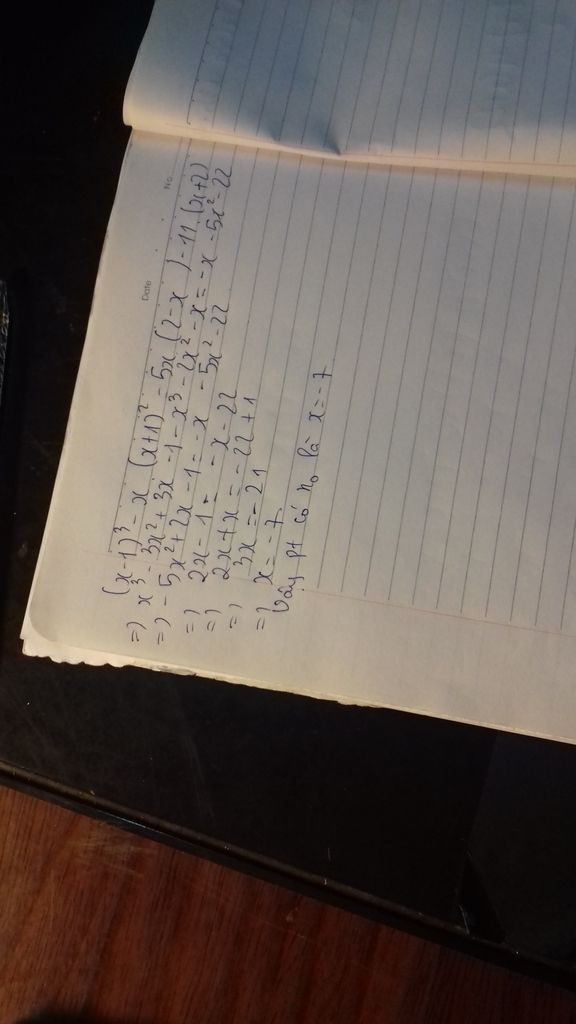 No.
Date
(x-1)³ - x (x+1)² - 5x (2-x) - 11 (x+2)
=) x³ - 3x² + 3x - 1 - x³ - 2x² - x = -x - 5x² - 22
=) - 5x² + 2x - 1 = -x - 5x² - 22
=) 2x - 1 = -x - 22
=) 2x + x = - 22 + 1
=) 3x = - 21
=) x = - 7
Vậy pt có no là x = - 7